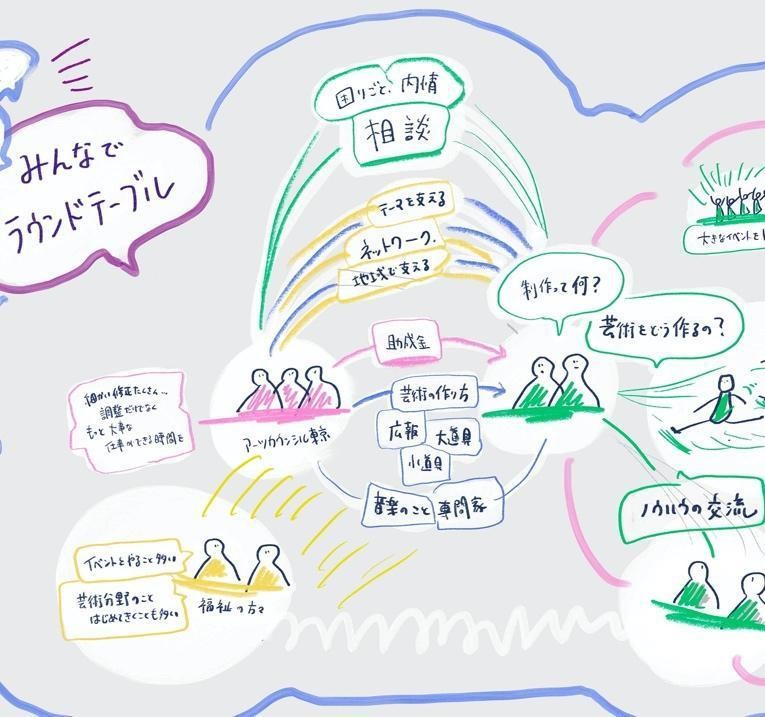 みんなで
ラウンドテーブル
困りごと、内情
相談
テーマを支える
ネットワーク.
地域で支える
制作って何?
大きなイベントを
芸術をどう作るの?
助成金
細かい修正たくさん…
調整だけでなく
もっと大事な
仕事ができる時間を
アーツカウンシル東京
芸術の作り方
広報
大道具
小道具
音楽のこと
専門家
ノウハウの交流
イベントをやること多い
芸術分野のこと
はじめてきくことも多い
福祉の方々